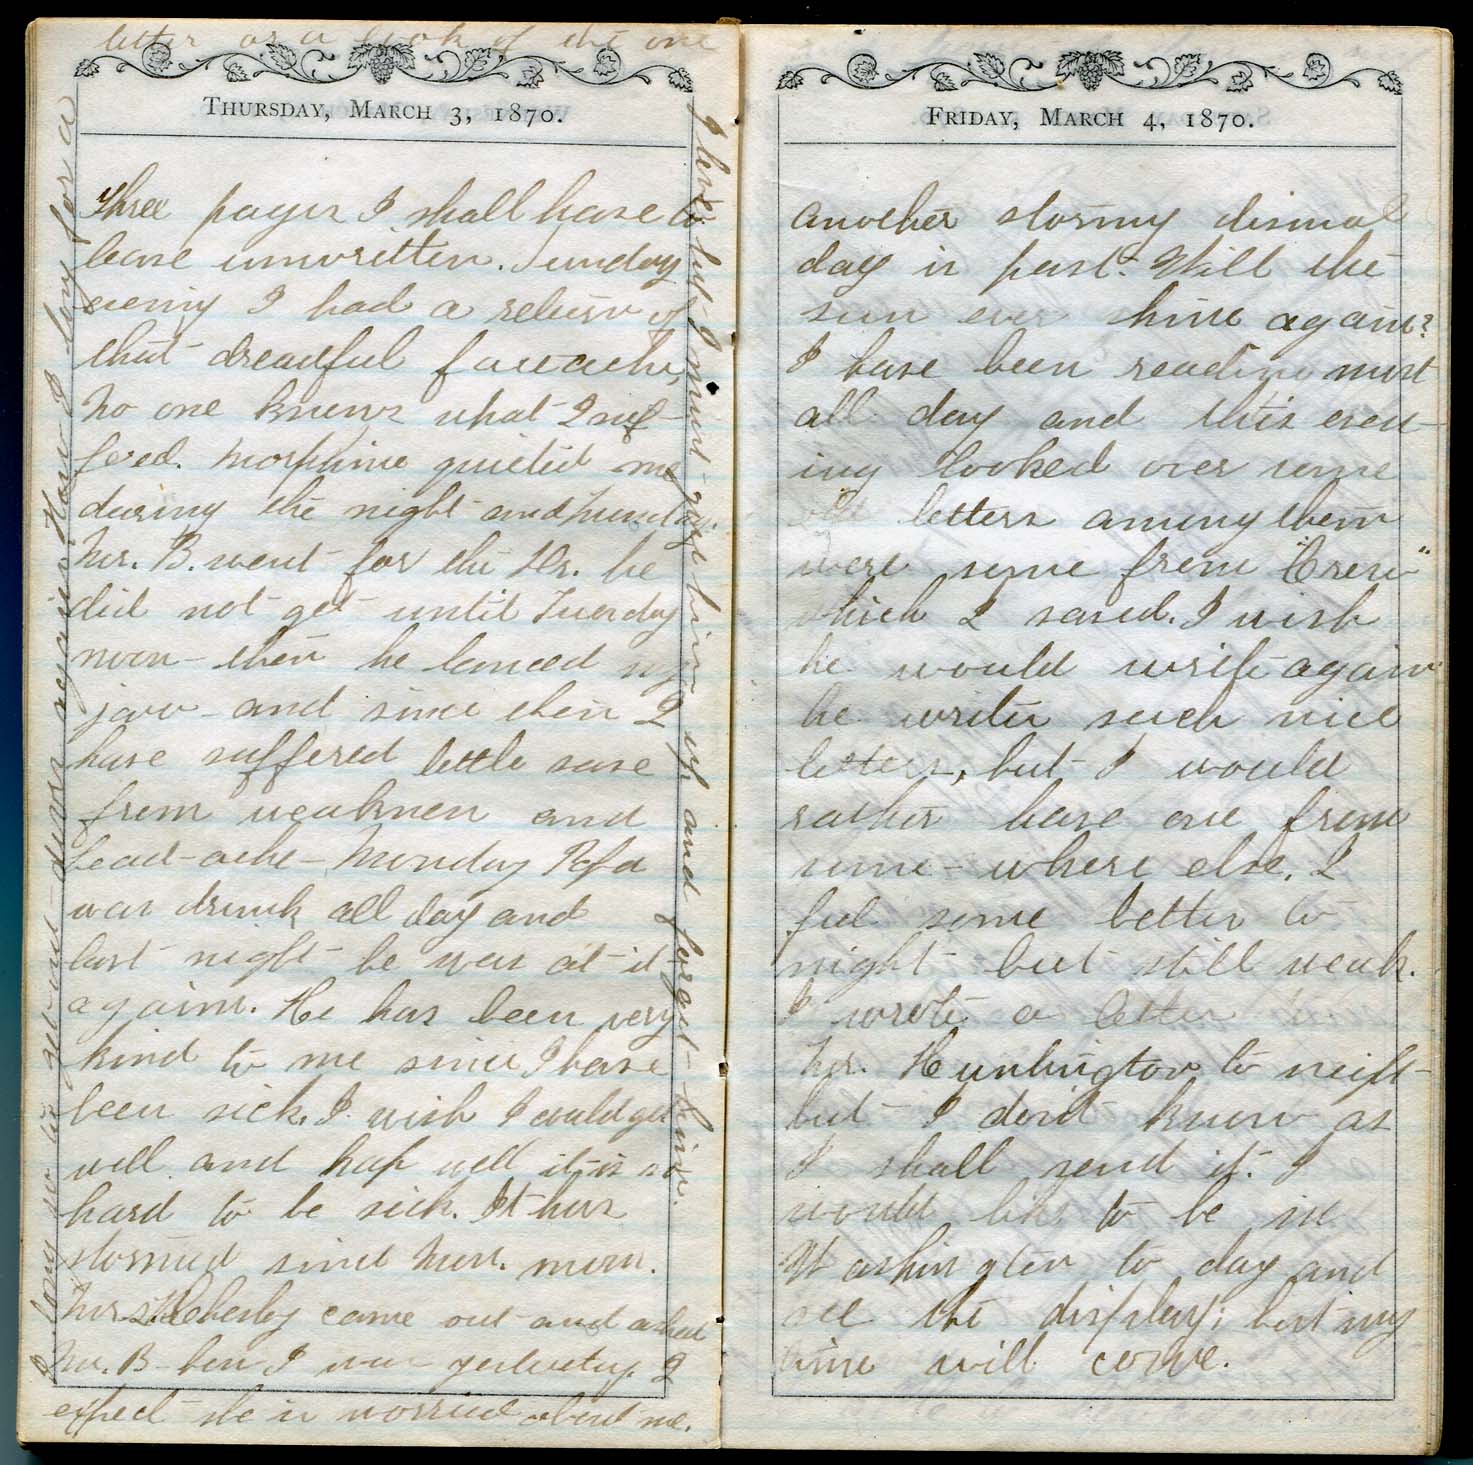 Thursday, March 3, 1870.
Three pages I shall have to
leave unwritten. Sunday
evening I had a return of
that dreadful faceache,
No one knows what I suf-
fered. Morphine quieted me
during the night and Monday
Mr. B. went for the Dr. he
did not get until Tuesday
noon - then he lanced my
jaw - and since then I
have suffered little save
from weakness and
head-ache - Monday Papa
was drunk all day and
last night he was at it
again. He has been very
kind to me since I have
been sick. I wish I could get
well and keep well it is so
hard to be sick. It has
stormed since Mon. morn.
Mrs. came out and asked
Mr. B how I was yesterday. I
expect she is worried about me.
I long so to get out-doors again. How I long for a
letter or a look of the one
I love, but I must give him up and forget him.
Friday, March 4, 1870.
another stormy dismal
day is past. Will the
sun ever shine again?
I have been reading most
all day and this even-
ing looked over some
old letters among them
were some from "Crew"
which I saved. I wish
he would write again
he writes such nice
letters, but I would
rather have one from
some-where else. I
feel some better to
night but still weak.
I wrote a letter to
Mr. Huntington to night
but I don't know as
I shall send it. I
would like to be in
Washington to day and
see the display; but my
time will come.